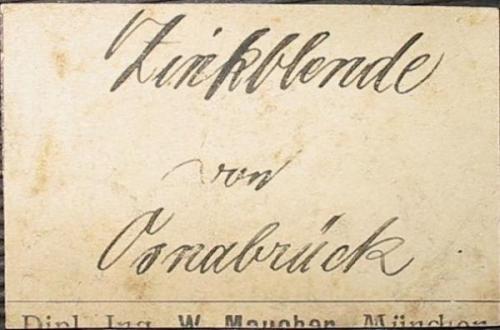 Zinkblende
von
Osnabrück
Dipl. Ing. W. Maucher, München